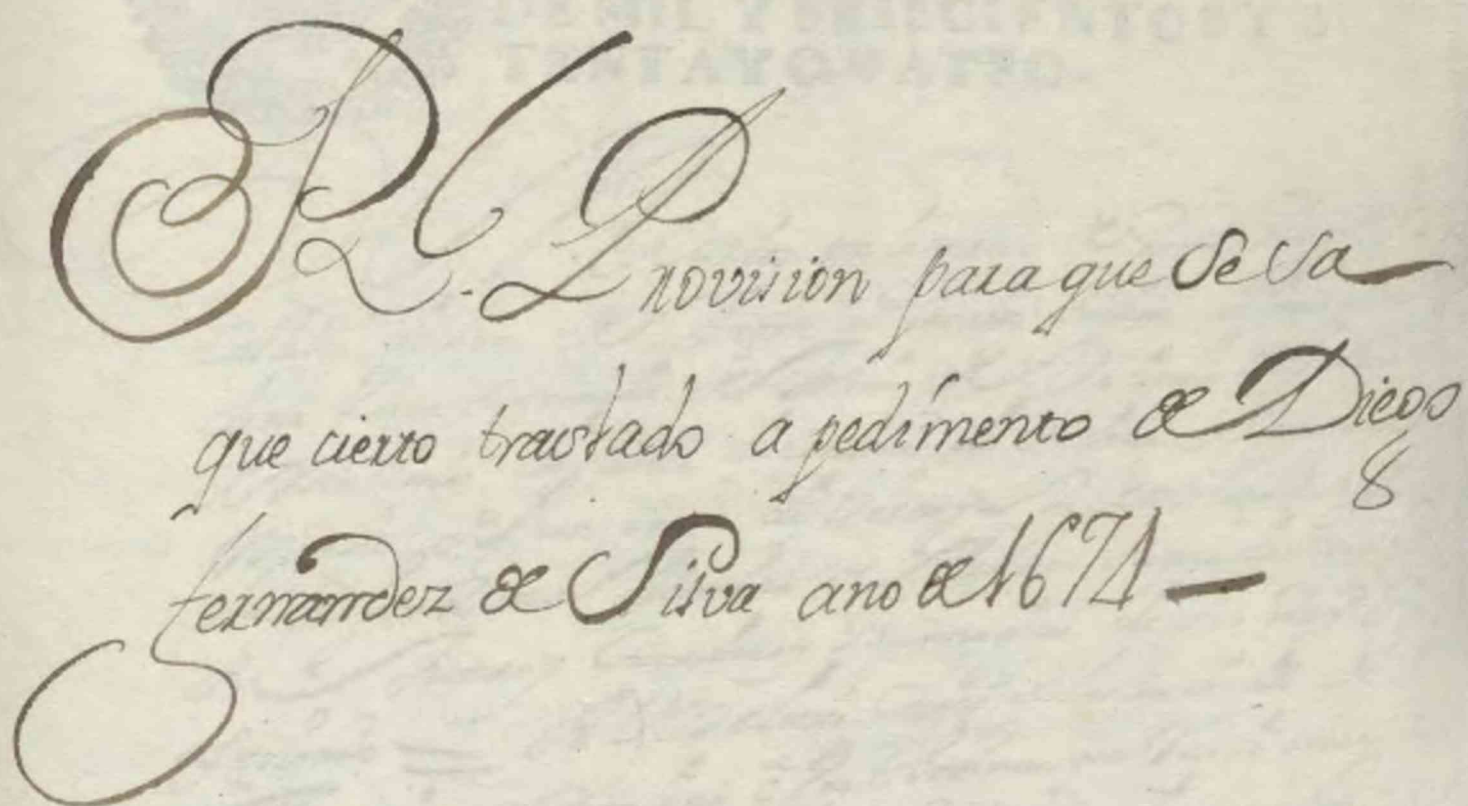 Rl. Provision para que se sa
que cierto traslado a pedimento de Diego
fernandez de Silva ano de 1674 —